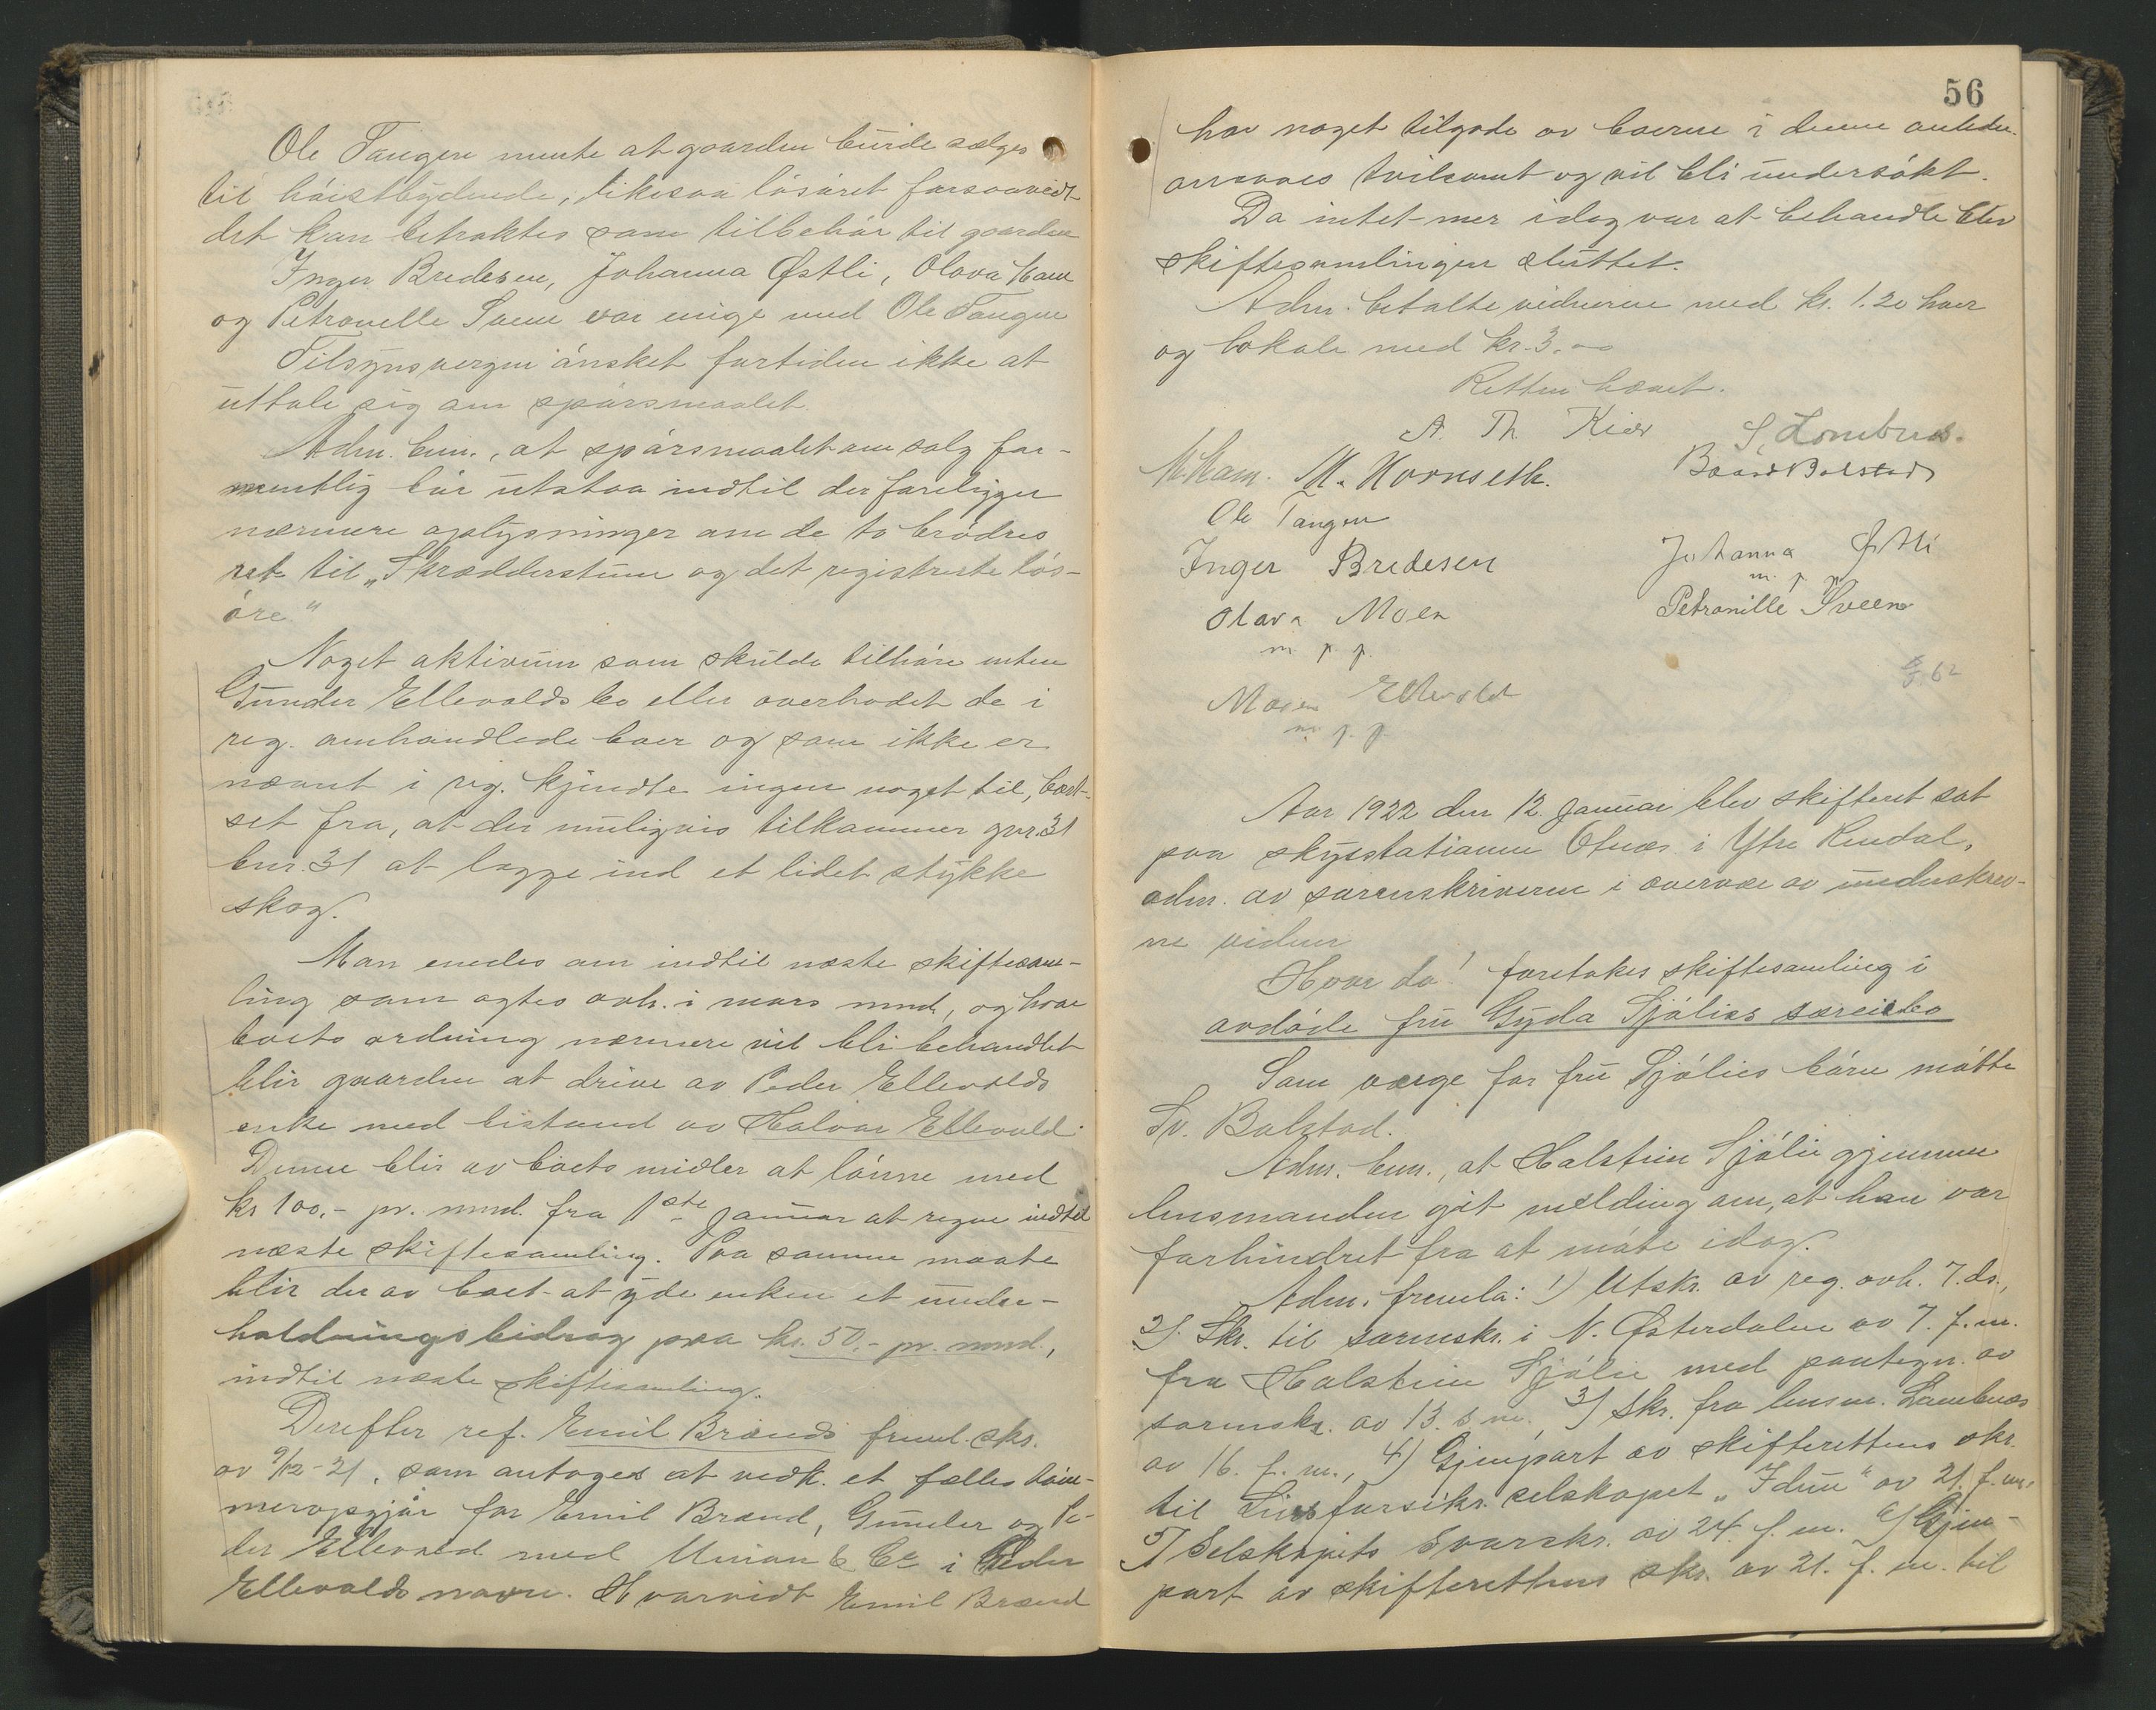 Ole Tangen mente at gaarden burde sælges
til høistbydende, likesaa løsøret forsaavidt
det kan betraktes som tilbehør til gaarden
Inger Bredesen, Johanna Østli, Olava Moen
og Petronelle Sveen var enige med Ole Tangen
Tilsynsvergen ønsket fortiden ikke at
uttale sig om spørsmaalet.
Adm. bem., at spørsmaalet om salg for-
mentlig bør utstaa indtil der foreligger
nærmere oplysninger om de to brødres
ret til „Skrædderstuen og det registrerte løs-
øre"
Noget aktivum som skulde tilhøre enten
Gunder Ellevolds bo eller overhodet de i
reg. omhandlede boer og som ikke er
nævnt i reg. kjendte ingen noget til, bort-
set fra, at der muligvis tilkommer gnr. 31
bnr. 31 at lægge ind et lidet stykke
skog.
Man enedes om indtil næste skiftesam-
ling som agtes avh. i mars mnd, og hvor
boets ordning nærmere vil bli behandlet
blir gaarden at drive av Peder Ellevolds
enke med bistand av Halvor Ellevold.
Denne blir av boets midler at lønne med
kr 100,- pr. mnd. fra 1ste januar at regne indtil
næste skiftesamling. Paa samme maate
blir der av boet at yde enken et under-
holdningsbidrag paa kr. 50,- pr. mnd.,
indtil næste skiftesamling.
Derefter ref. Emil Brænds freml. skr.
av 9/12-21, som antoges at vedk. et fælles tøm-
meropgjør for Emil Brænd, Gunder og Pe-
der Ellevold med Union & Co i Peder
Ellevolds navn. Hvorvidt Emil Brænd
56
har noget tilgode av boerne i denne anledn.
ansaaes tvilsomt og vil bli undersøkt.
Da intet mer idag var at behandle blev
skiftesamlingen sluttet.
Adm. betalte vidnerne med kr. 1.20 hver
og lokale med kr. 3.00
Retten hævet.
A. Th Kiær S. Lombnæs.
M. Moen. M. Hornseth. Baard Bolstad
Ole Tangen
Inger Bredesen Johanna Østli
m. p. p.
Olava Moen Petronille Sveen
m p p.
Maren Ellevold
m. p. p.
f. 62
Aar 1922 den 12. januar blev skifteret sat
paa skysstationen Otnes i Ytre Rendal,
adm. av sorenskriveren i overvær av underskrev-
ne vidner
Hvor da! foretokes skiftesamling i
avdøde fru Gyda Sjølies særeiebo
Som værge for fru Sjølies børn møtte
Sv. Bolstad.
Adm. bem., at Halstein Sjølie gjennem
lensmanden git melding om, at han var
forhindret fra at møte idag.
Adm. fremla: 1) Utskr. av reg. avh. 7. ds.,
2). Skr. til sorenskr. i N. Østerdalen av 7. f.m.
fra Halstein Sjølie med paategn. av
sorenskr. av 13. s. m., 3) Skr. fra lensm. Lombnæs
av 16. f. m., 4) Gjenpart av skifterettens skr.
til Livsforsikr. selskapet „Idun" av 21. f. m.
5) Selskapets svarskr. av 24. f. m. 6) Gjen-
part av skifterettens skr. av 21. f. m. til